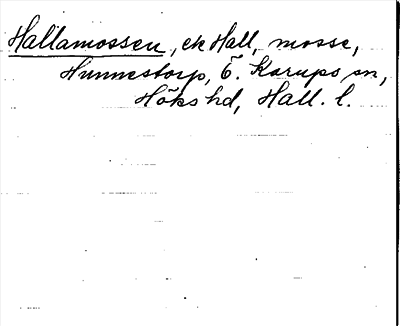 Hallamossen, ek Hall, mosse,
Hunnestorp, Ö. Karups sn,
Höks hd, Hall. l.